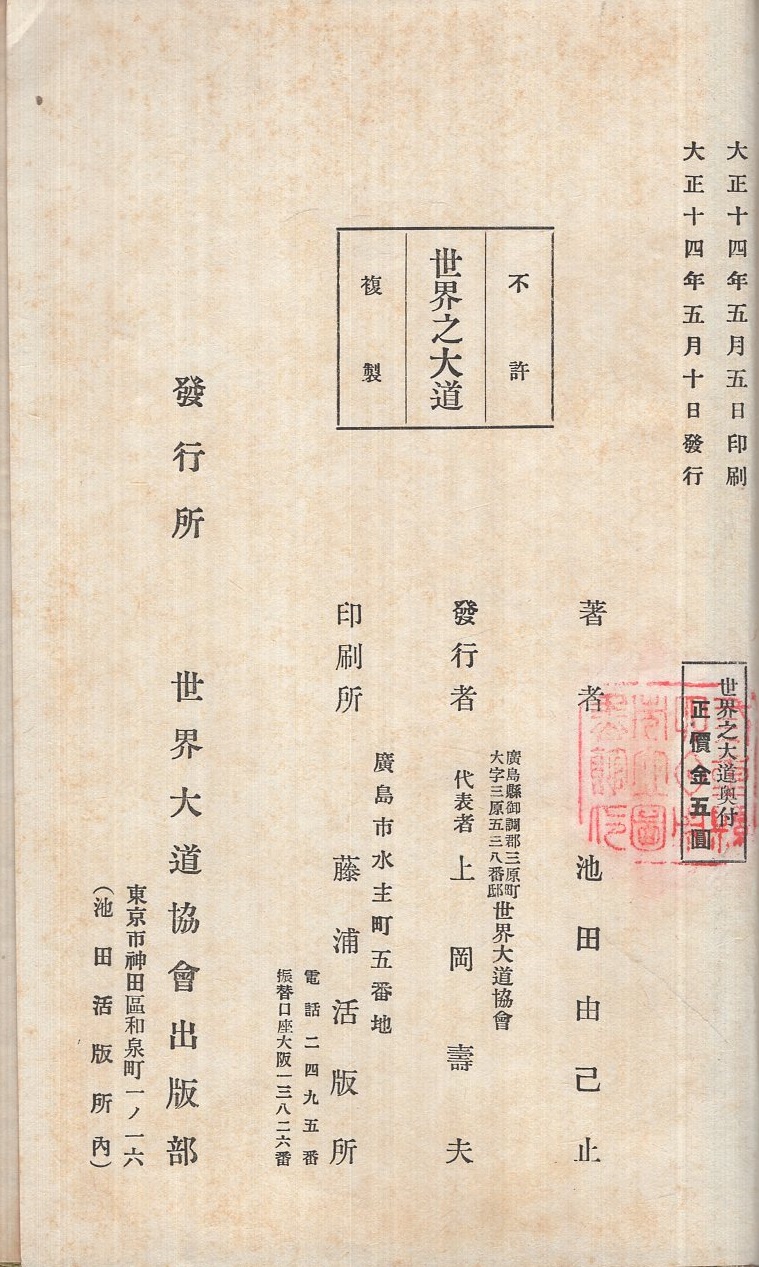 大正十四年五月五日印刷
大正十四年五月十日發行
世界之大道奥付
正價金五圓
不許
世界之大道
複製
著者 池田由己止
廣島縣御調郡三原町
大字三原五三八番邸
世界大道協會
發行者 代表者 上岡壽夫
廣島市水主町五番地
印刷所 藤浦活版所
電話二四九五番
振替口座大阪一三八二六番
發行所 世界大道協會出版部
東京市神田區和泉町一ノ一六
(池田活版所內)